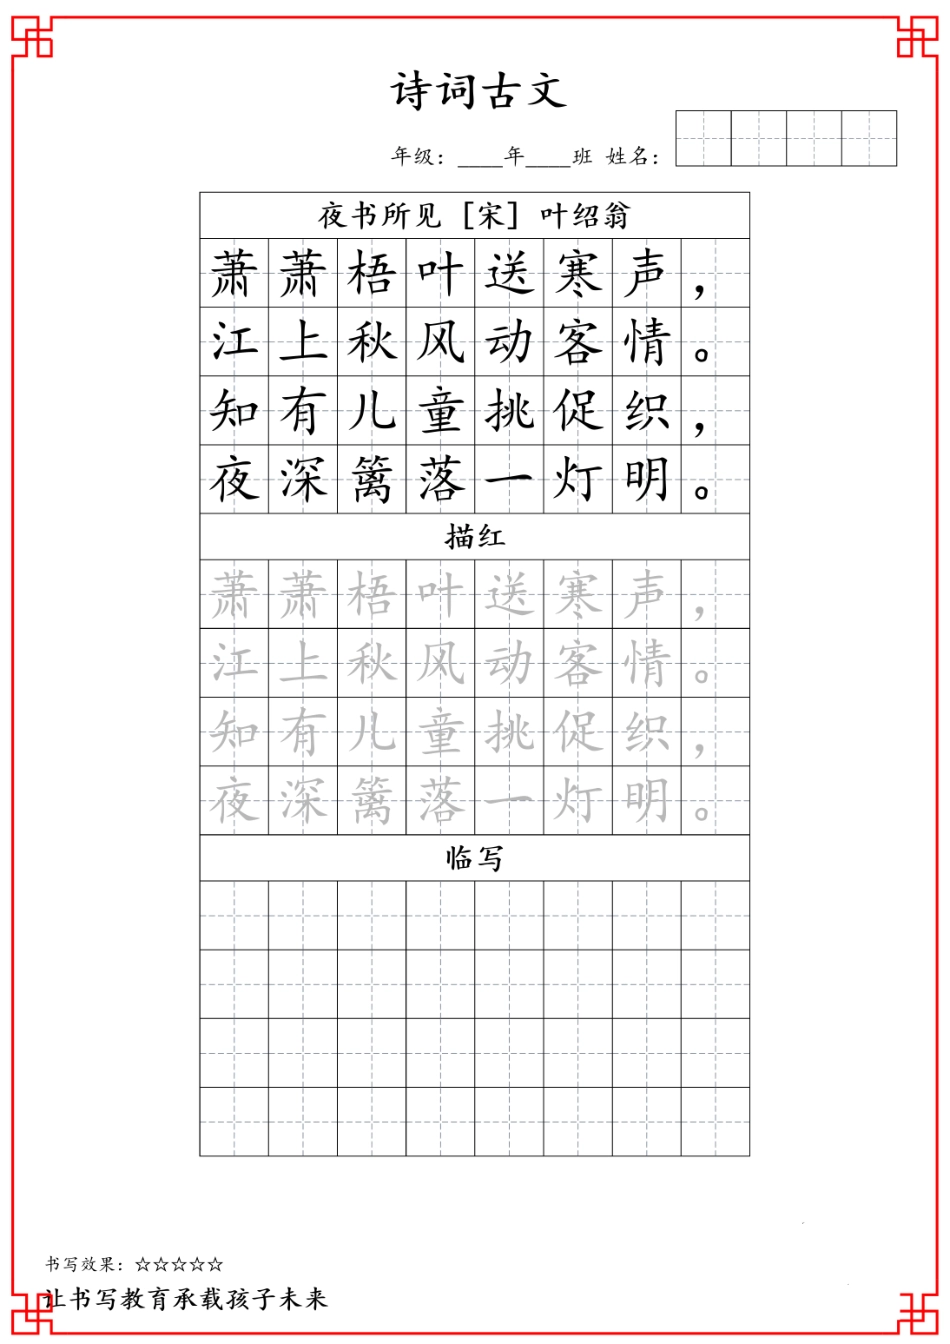 诗词古文
年级：____年____班 姓名：
夜书所见 [宋] 叶绍翁
萧萧梧叶送寒声，
江上秋风动客情。
知有儿童挑促织，
夜深篱落一灯明。
描红
萧萧梧叶送寒声，
江上秋风动客情。
知有儿童挑促织，
夜深篱落一灯明。
临写
书写效果：☆☆☆☆☆
让书写教育承载孩子未来